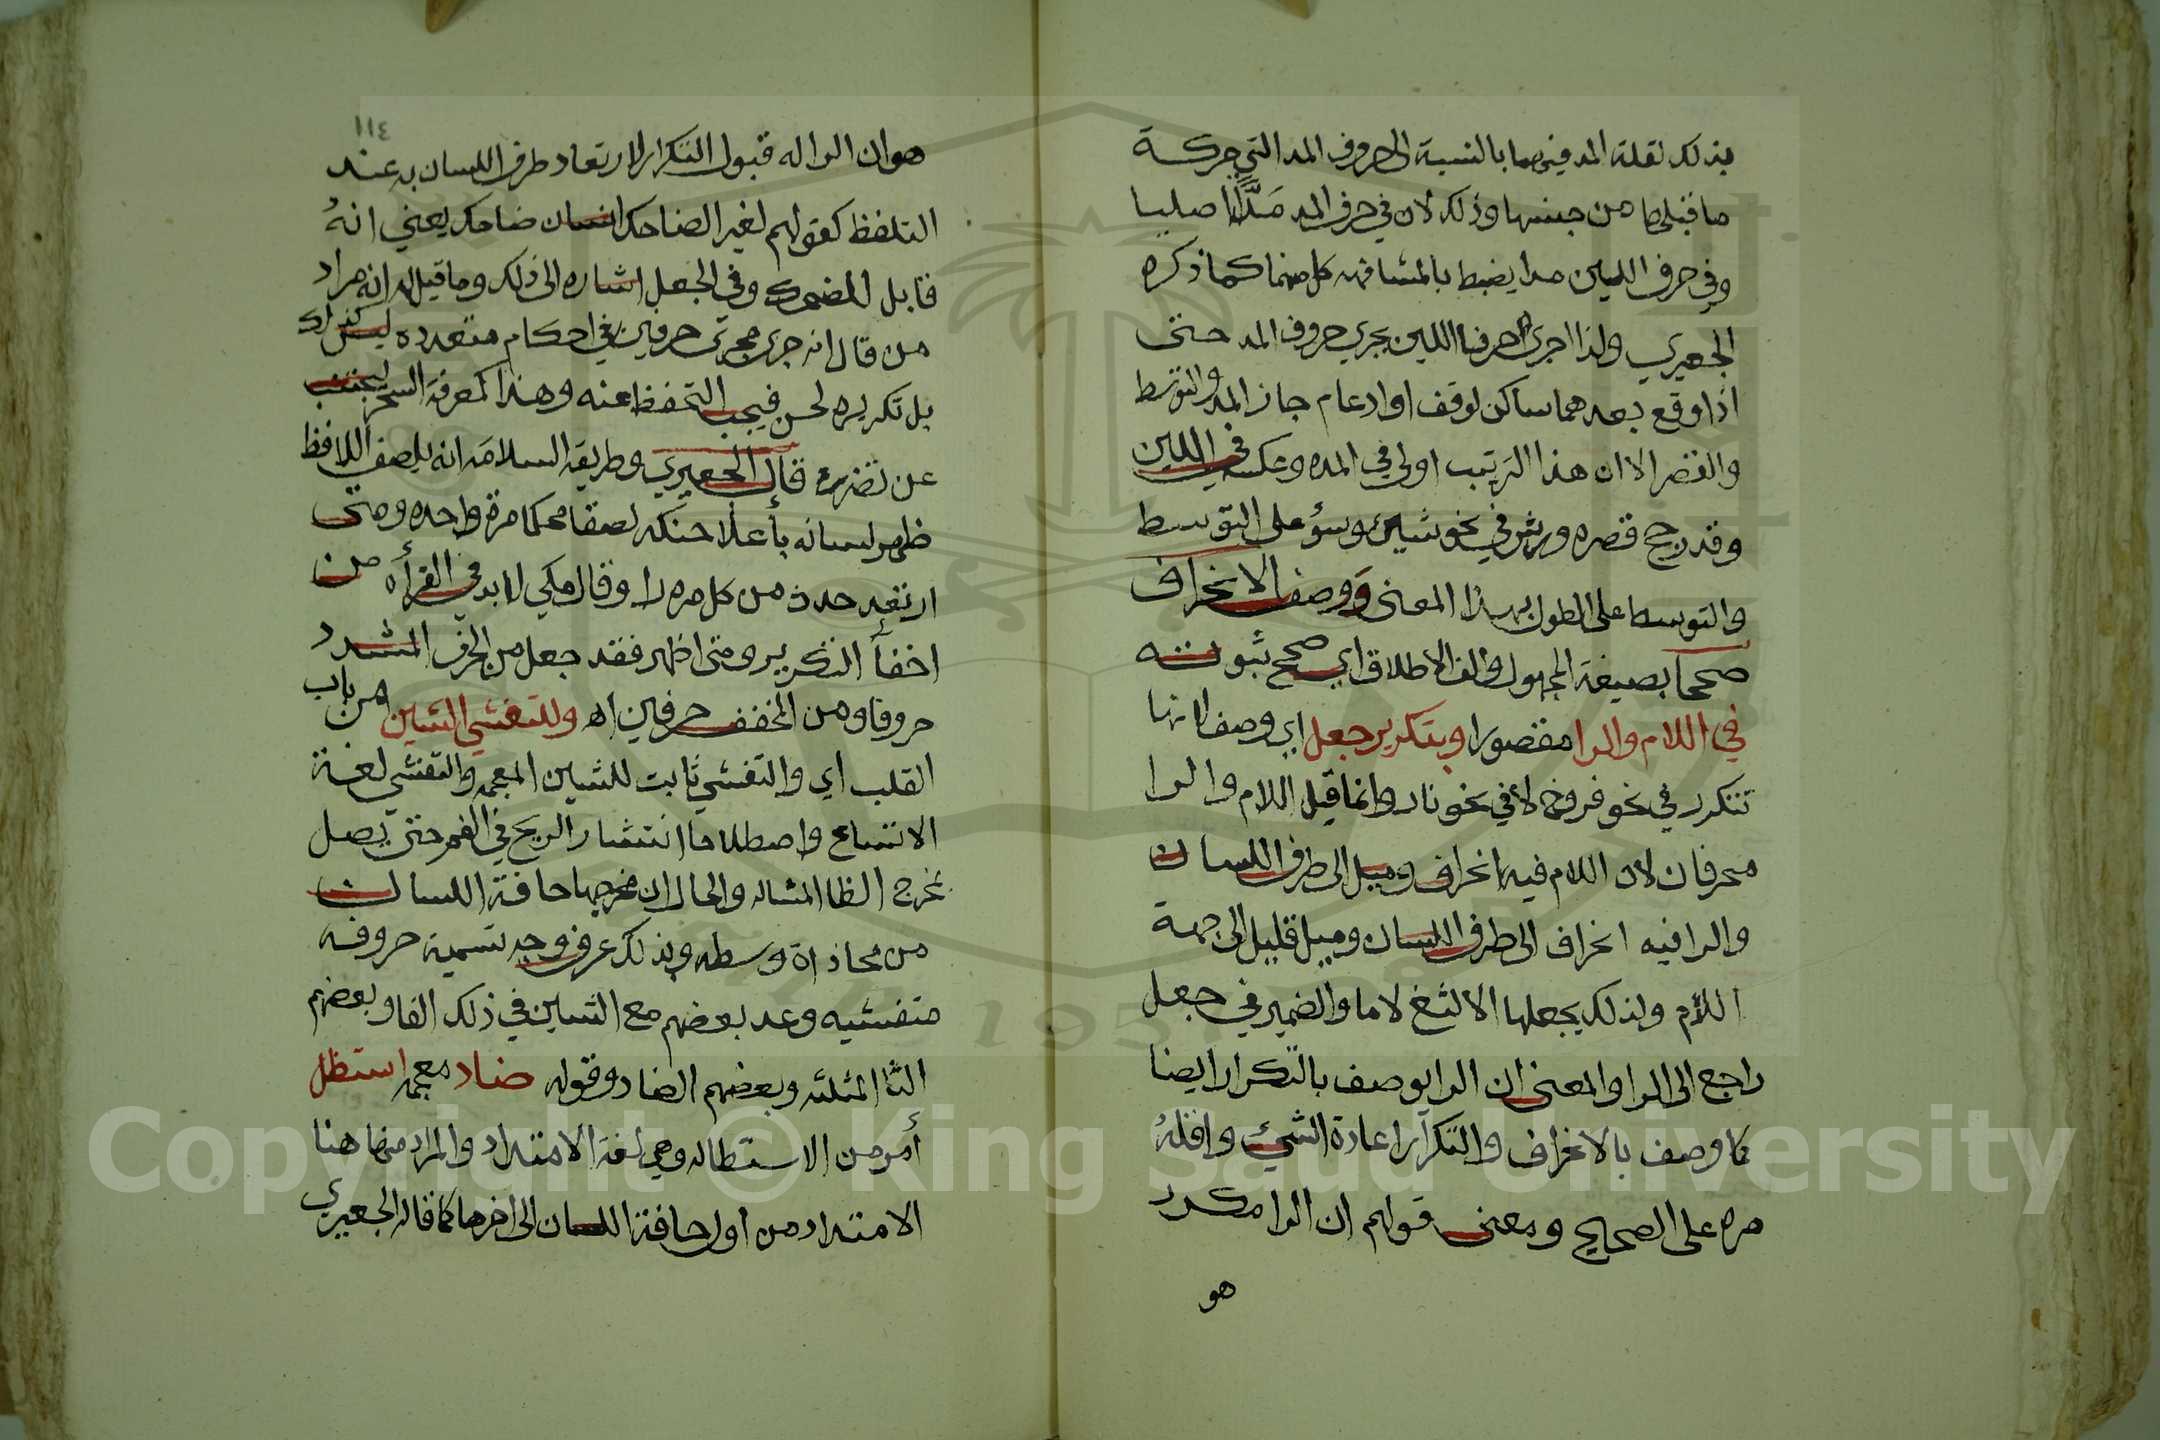 بذلك لقلة المد فيهما بالنسبة الى حروف المد التي حركة
ما قبلها من جنسها وذلك لان في حرف المد مَدًّا اصليا
وفي حرف اللين مدا يضبط بالمشافهه كل منهما كما ذكره
الجعبري ولذا اجرى حرفا اللين مجري حروف المد حتى
اذا وقع بعدهما ساكن لوقف او ادغام جاز المد والتوسط
والقصر الا ان هذا الترتيب اولى في المد وعكسه في اللين
وقد رجح قصره ورش في نحو شيئ وسؤ على التوسط
والتوسط على الطول بهذا المعنى ووصف الانحراف
صححا بصيغة المجهول والف الاطلاق اي صحح ثبوته
في اللام والرا مقصورا وبتكرير جعل اي وصف لانها
تتكرر في نحو فروخ لا في نحو نار وانما قيل اللام والرا
منحرفان لان اللام فيه انحراف وميل الى طرف اللسان
والرا فيه انحراف الى طرف اللسان وميل قليل الى جهة
اللام ولذلك يجعلها الالثغ لاما والضمير في جعل
راجع الى الرا والمعنى ان الرا يوصف بالتكرار ايضا
كما وصف بالانحراف والتكرار اعادة الشيئ واقلهُ
مره على الصحيح ومعنى قولهم ان الرا مكرر
هو
١١٤
هو ان الرا له قبول التكرار لارتعاد طرف اللسان به عند
التلفظ كقولهم لغير الضاحك انسان ضاحك يعني انهُ
قابل للضحك وفي الجعل اشاره الى ذلك وما قيل له انه مراد
من قال انه جرى مجرى حرفين في احكام متعدده ليس كذلك
بل تكريره لحن فيجب التحفظ عنه وهذا كمعرفة السحر ليجتنب
عن تضرره قال الجعبري وطريقه السلامة انه يلصق اللافظ
ظهر لسانه بأعلا حنكه لصقا محكما مرة واحده ومتى
ارتعد حدث من كل مره را وقال مكي لا بد في القرأه من
اخفأ التكرير ومتى اظهر فقد جعل من الحرف المشدد
حروفا ومن المخفف حرفين اه وللتفشي الشين من باب
القلب اي والتفشي ثابت للشين المعجمه والتفشي لغة
الاتساع واصطلاحا انتشار الريح في الفم حتى يصل
بمخرج الظا المشاله والحال ان مخرجها حافة اللسان
من محاذاة وسطه وبذلك عرف وجه تسمية حروفه
متفشيه وعد بعضهم مع الشين في ذلك الفا وبعضهم
الثا المثلثه وبعضهم الضاد وقوله ضاد معجمه استطل
أمر من الاستطاله وهي لغة الامتداد والمراد منها هنا
الامتداد من اول حافة اللسان الى اخرها كما قاله الجعبري
Copyright © King Saud University